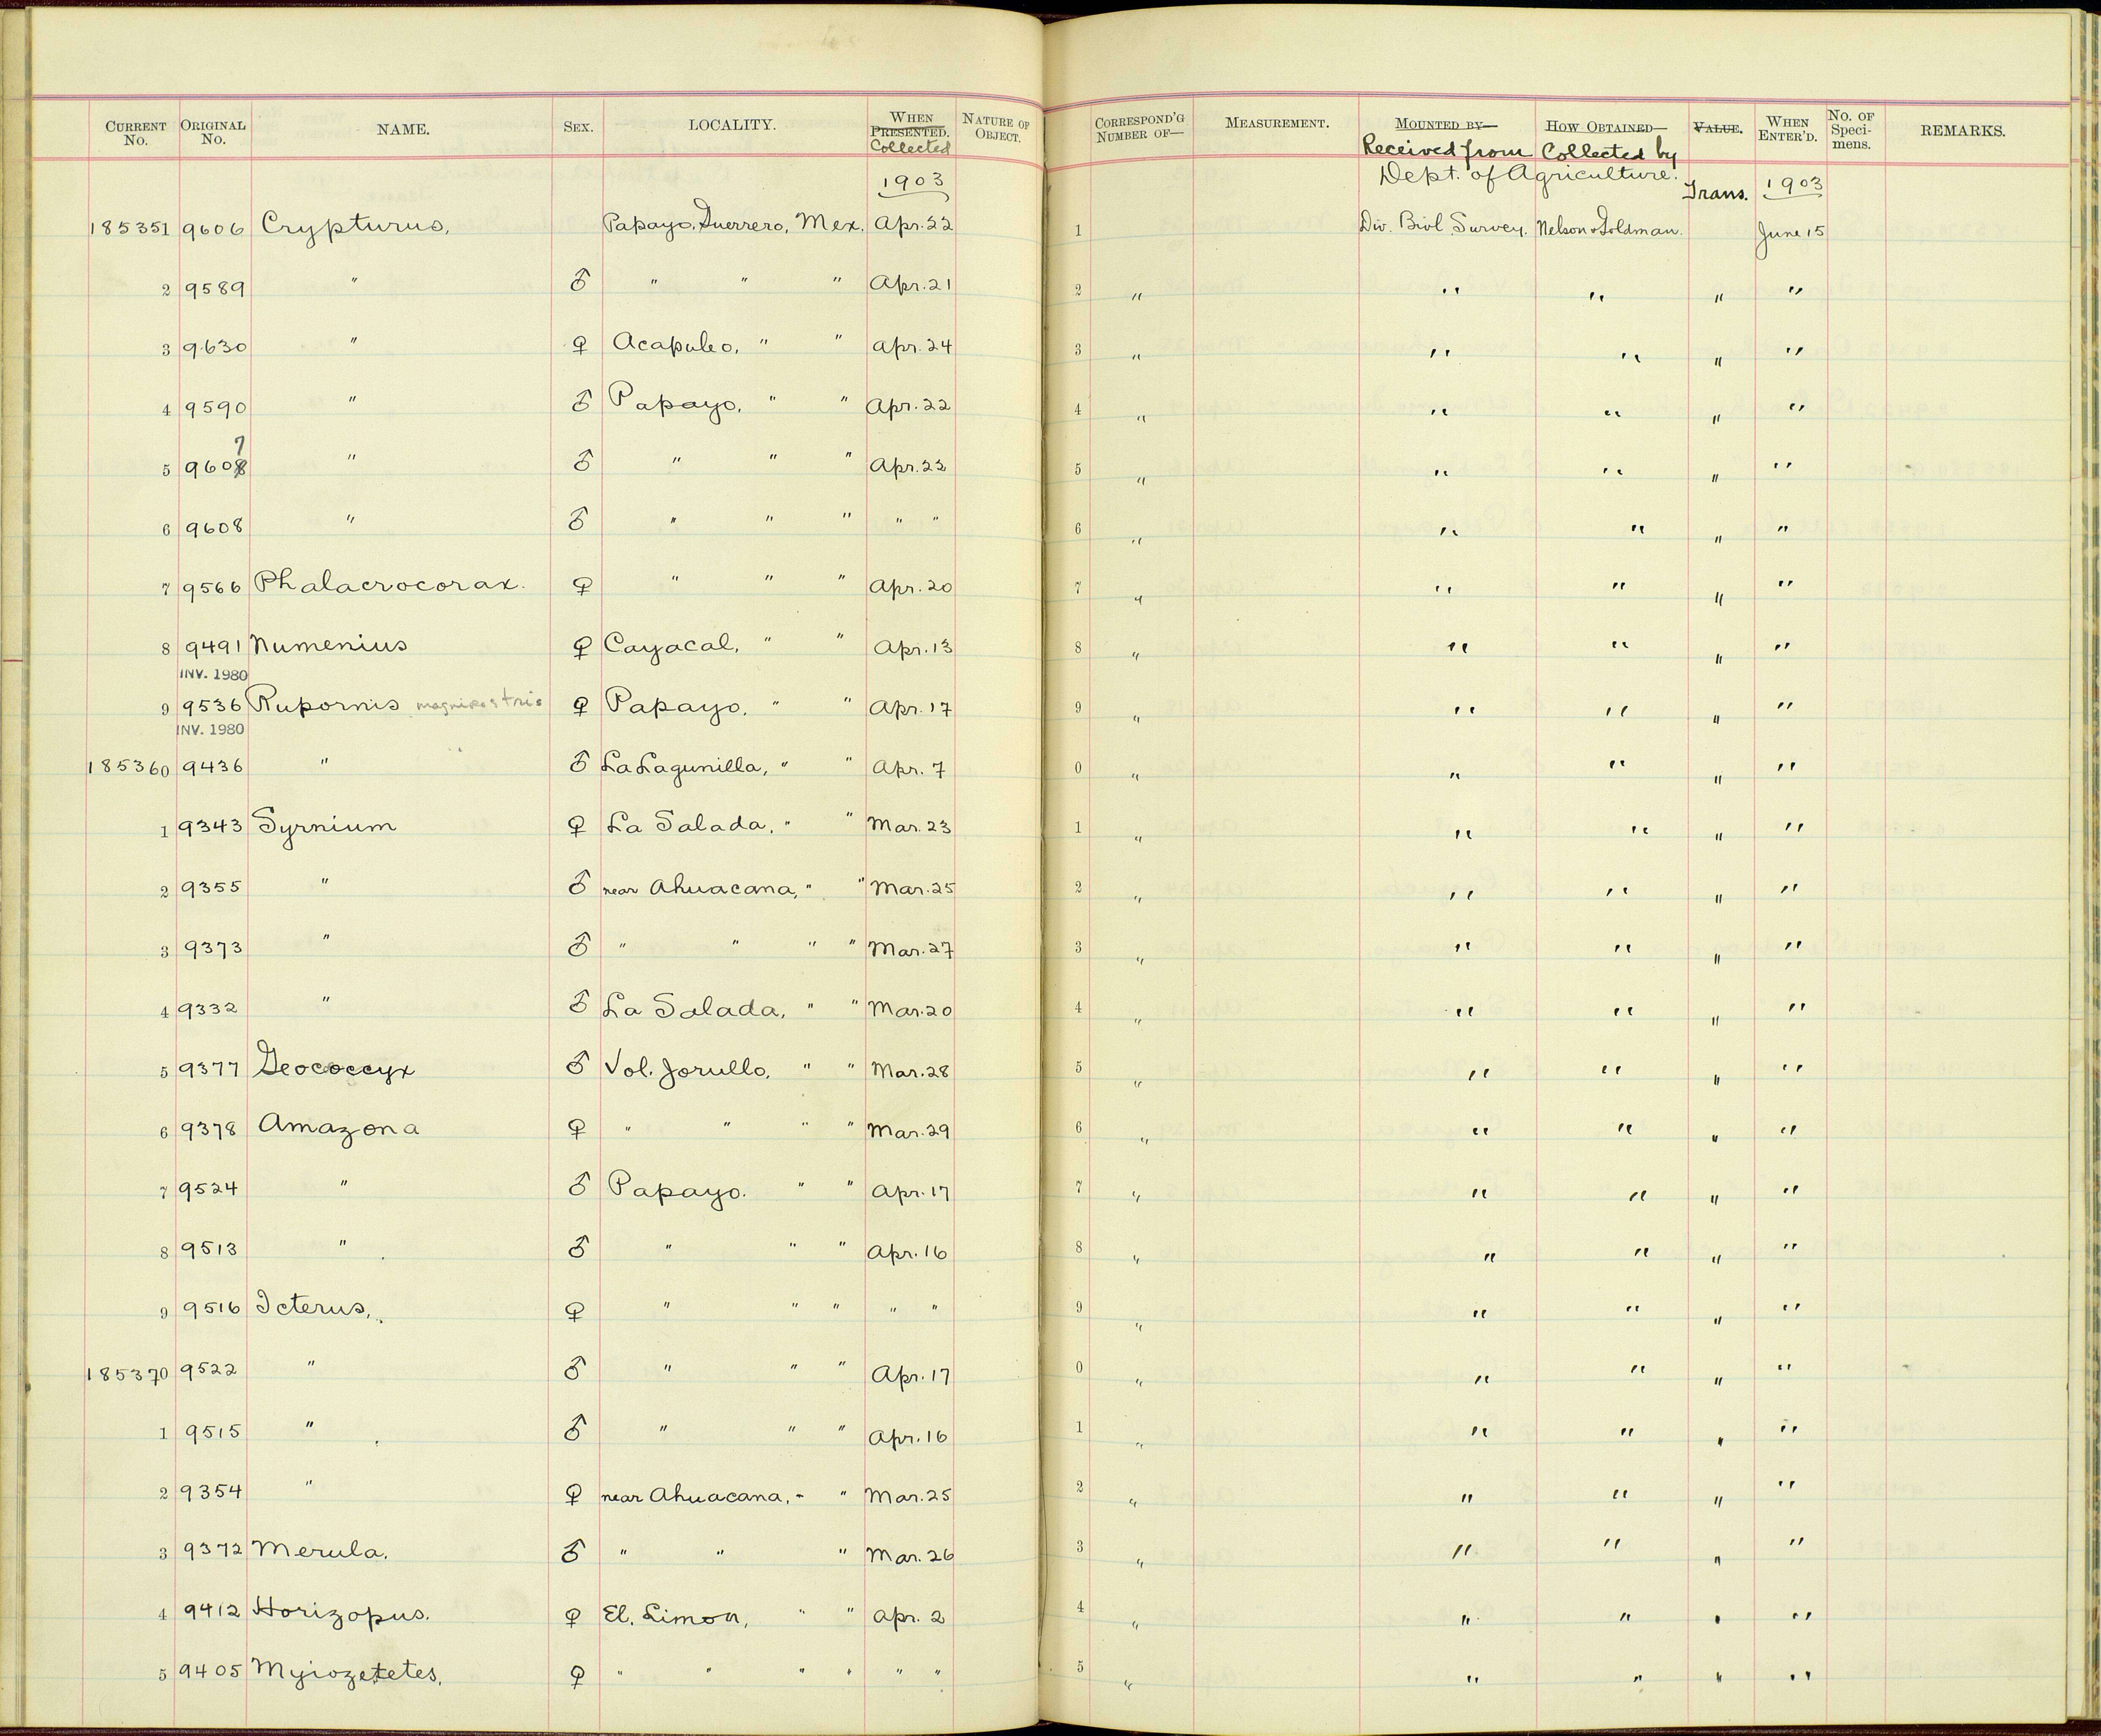 CURRENT No. ORIGINAL No. NAME. SEX. LOCALITY. WHEN PRESENTED. Collected NATURE OF OBJECT. CORRESPOND'G NUMBER OF— MEASUREMENT. MOUNTED BY— Received from HOW OBTAINED— Collected by VALUE. WHEN ENTER'D. No. OF Speci-mens. REMARKS.
1903 Dept. of Agriculture. Trans. 1903
185351 9606 Crypturus, Papayo, Guerrero, Mex. Apr. 22 1 Div. Biol. Survey. Nelson & Goldman. June 15
2 9589 " ♂ " " " Apr. 21 2 " " " " "
3 9630 " ♀ Acapulco, " " Apr. 24 3 " " " " "
4 9590 " ♂ Papayo, " " Apr. 22 4 " " " " "
7
5 9608 " ♂ " " " Apr. 22 5 " " " " "
6 9608 " ♂ " " " " " 6 " " " " "
7 9566 Phalacrocorax. ♀ " " " Apr. 20 7 " " " " "
8 9491 Numenius ♀ Cayacal, " " Apr. 13 8 " " " " "
INV. 1980
9 9536 Rupornis magnirostris ♀ Papayo, " " Apr. 17 9 " " " " "
INV. 1980
185360 9436 " ♂ La Lagunilla, " " Apr. 7 0 " " " " "
1 9343 Syrnium ♀ La Salada, " " Mar. 23 1 " " " " "
2 9355 " ♂ near Ahuacana, " " Mar. 25 2 " " " " "
3 9373 " ♂ " " " " Mar. 27 3 " " " " "
4 9332 " ♂ La Salada, " " Mar. 20 4 " " " " "
5 9377 Geococcyx ♂ Vol. Jorullo, " " Mar. 28 5 " " " " "
6 9378 Amazona ♀ " " " " Mar. 29 6 " " " " "
7 9524 " ♂ Papayo. " " Apr. 17 7 " " " " "
8 9513 " ♂ " " " Apr. 16 8 " " " " "
9 9516 Icterus, ♀ " " " " " 9 " " " " "
185370 9522 " ♂ " " " Apr. 17 0 " " " " "
1 9515 " ♂ " " " Apr. 16 1 " " " " "
2 9354 " ♀ near Ahuacana, " " Mar. 25 2 " " " " "
3 9372 Merula. ♂ " " " Mar. 26 3 " " " " "
4 9412 Horizopus. ♀ El. Limon, " " Apr. 2 4 " " " " "
5 9405 Myiozetetes, ♀ " " " " " " 5 " " " " "